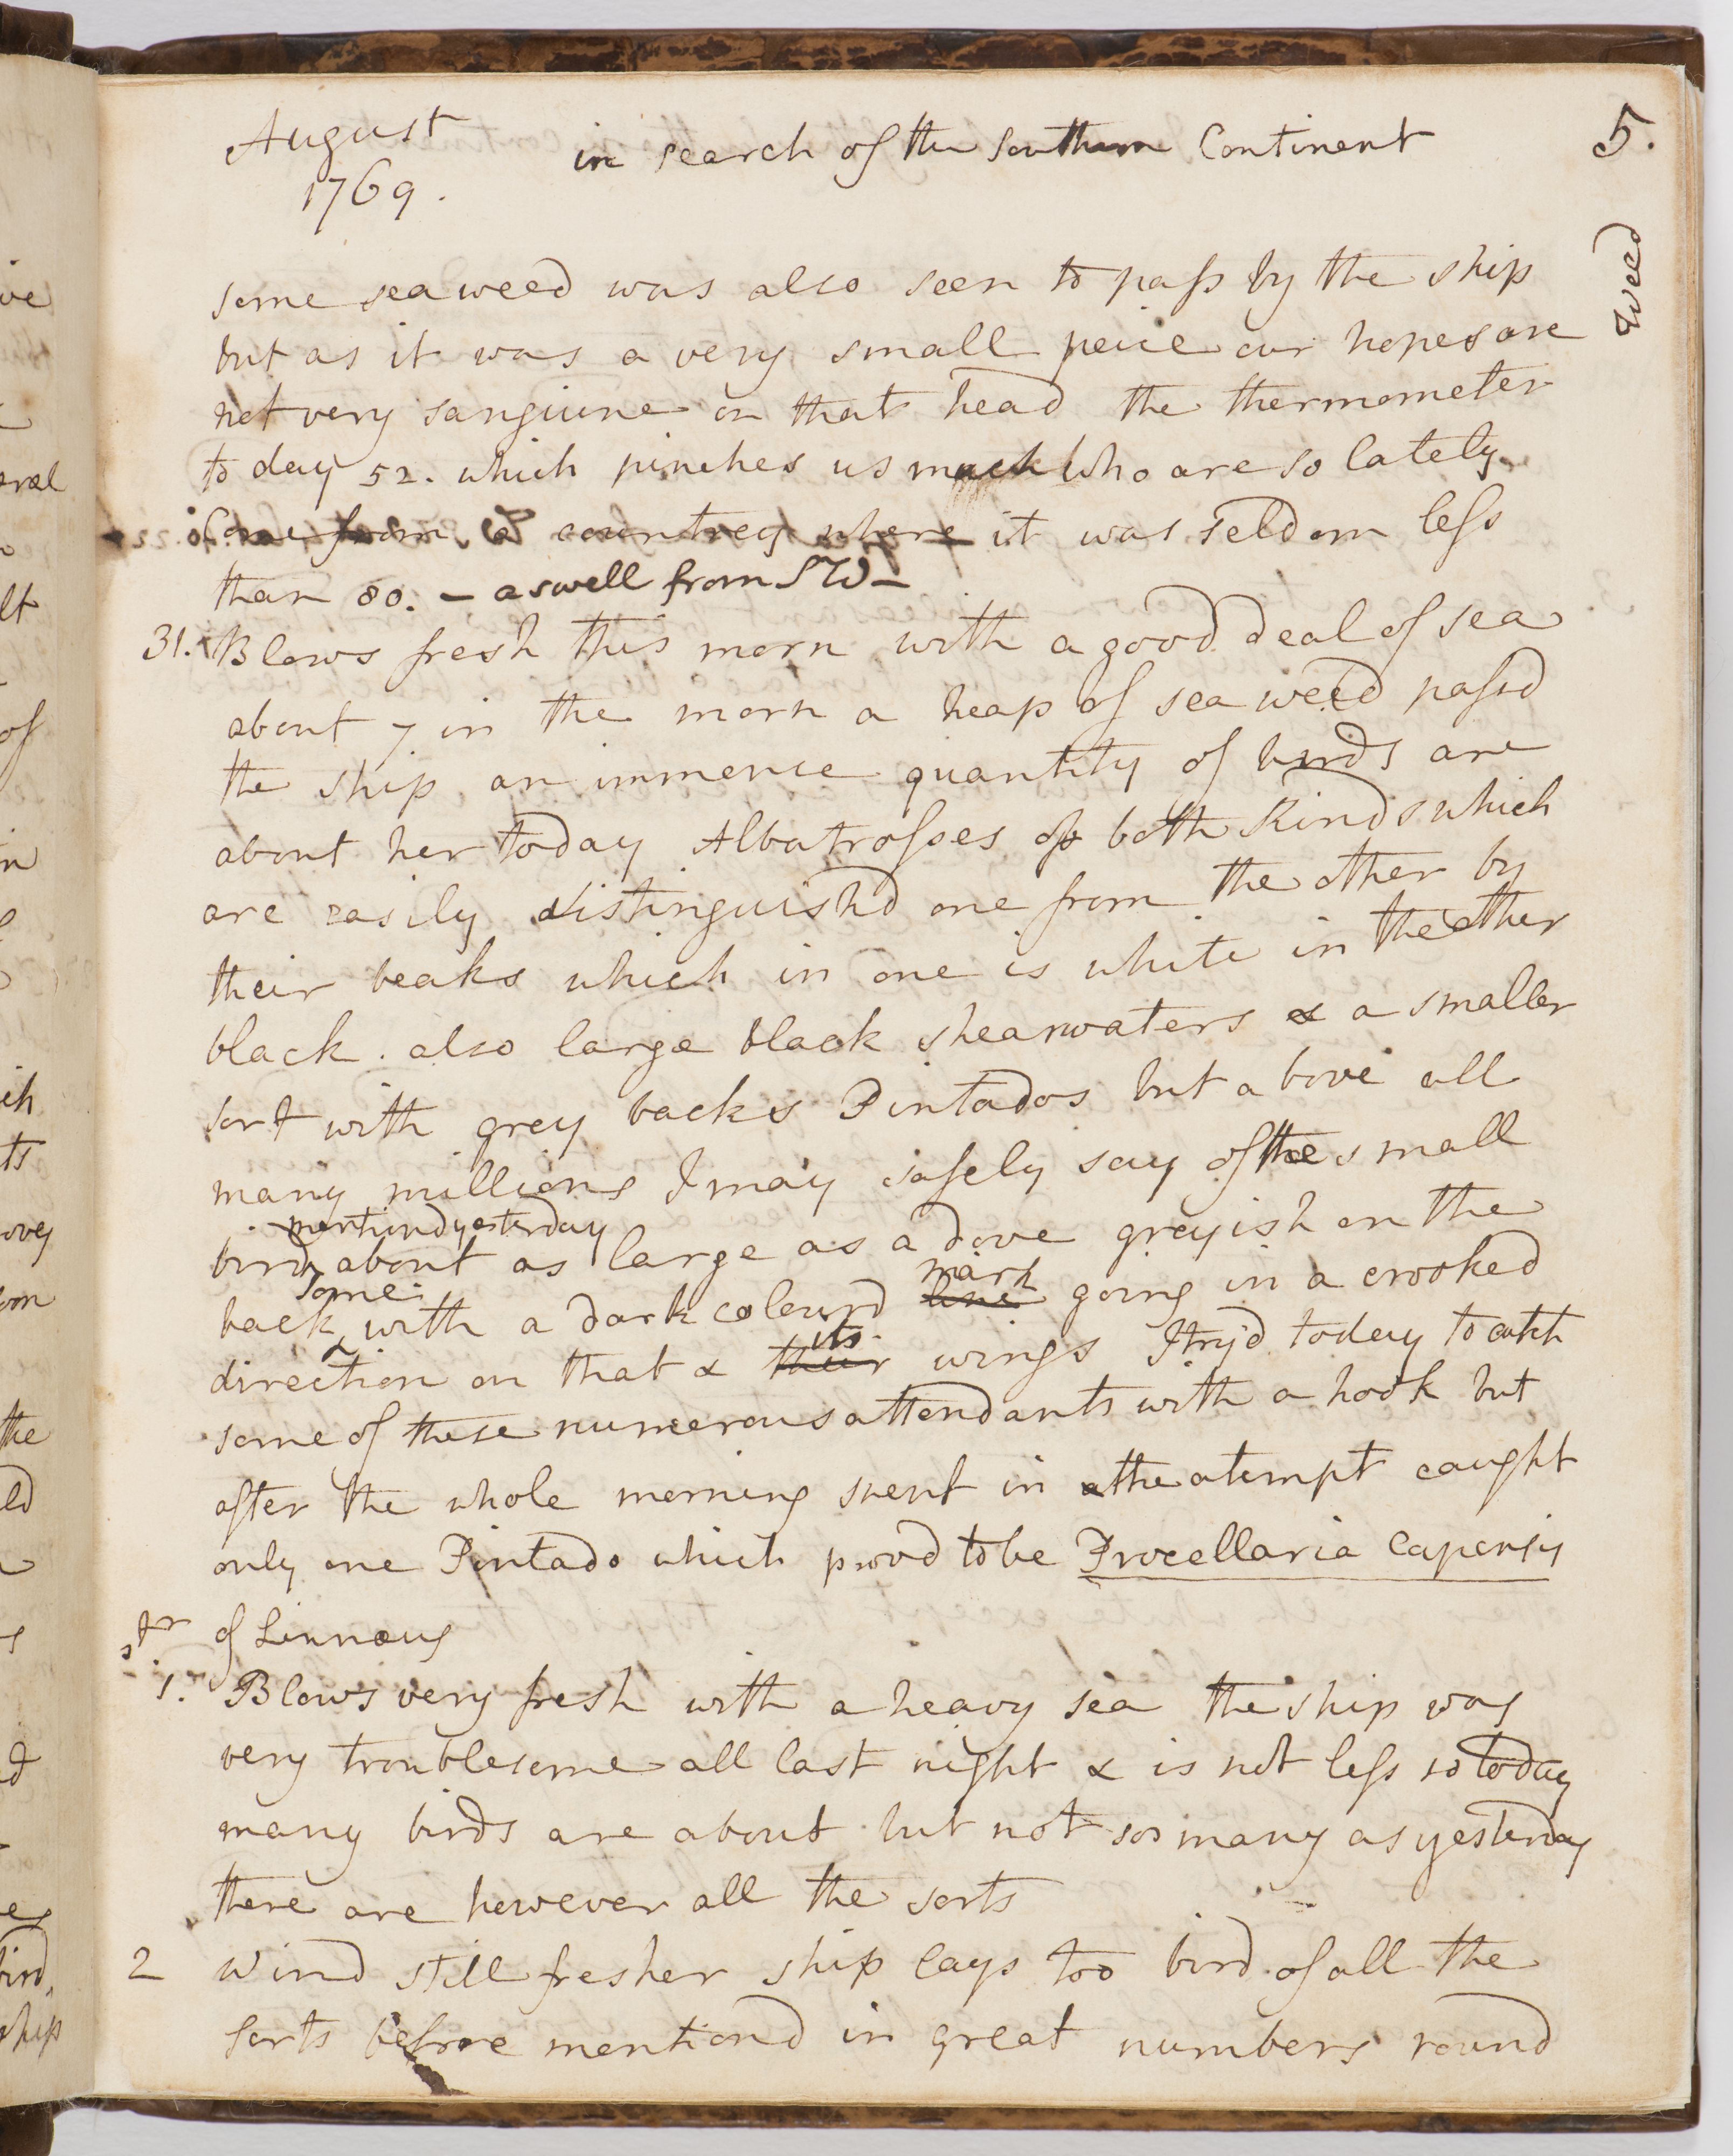 August
1769.
in search of the Southern Continent
5.
weed
some sea weed was also seen to paſs by the ship
but as it was a very small peice our hopes are
not very sanguine on that head the thermometer
to day 52. which pinches us much who are so lately
Come from a countrey where it was seldom leſs
than 80. - a swell from SW -
31. Blows fresh this morn with a good deal of sea
about 7 in the morn a heap of sea weed paſsd
the ship an immence quantity of birds are
about her today Albatroſses of both Kinds which
are easily distinguishd one from the other by
their beaks which in one is white in the other
black. also large black shearwaters & a smaller
sort with grey backs Pintados but above all
many millions I may safely say of the small
mentiond yesterday
bird about as large as a dove greyish on the
some mark
back with a dark colourd line going in a crooked
its
direction on that & their wings I tryd today to catch
some of these numerous attendants with a hook but
after the whole morning spent in the atempt caught
only one Pintado which provd to be Procellaria Capensis
of Linnaeus
1. Blows very fresh with a heavy sea the ship was
very troublesome all last night & is not leſs so today
many birds are about but not so many as yesterday
there are however all the sorts
2 Wind still fresher ship lays too bird of all the
sorts before mentiond in great numbers round